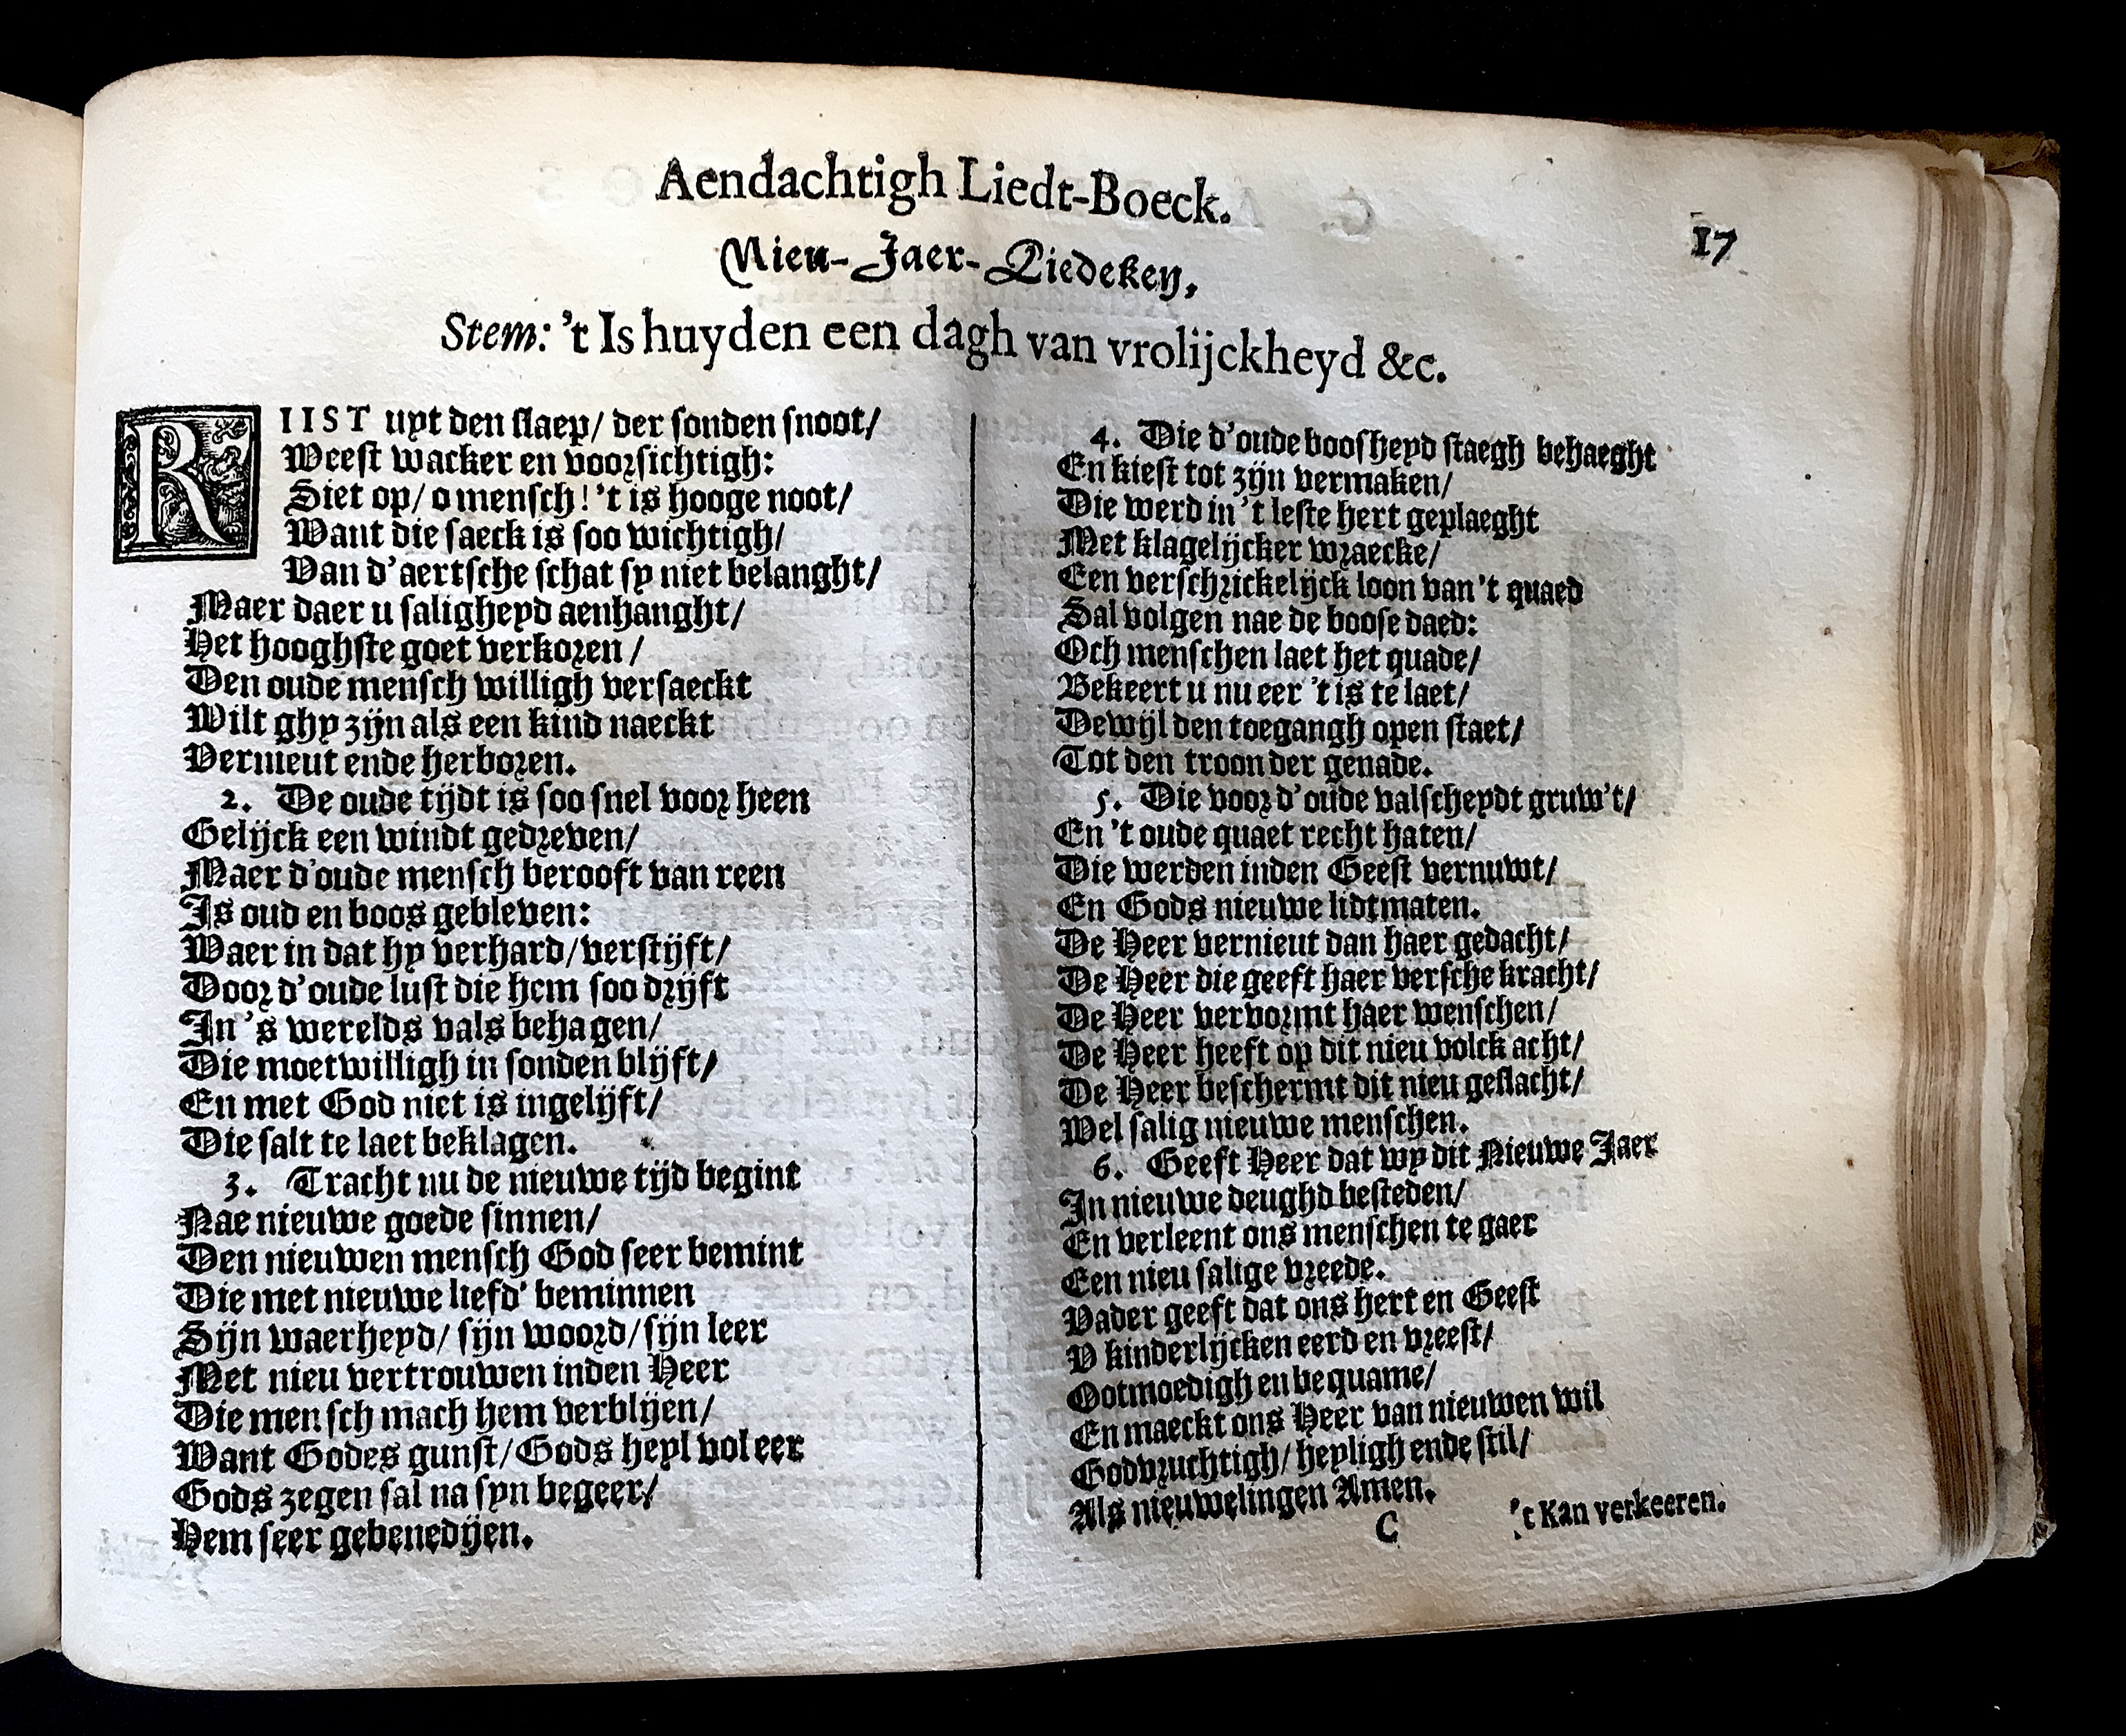 Aendachtigh Liedt-Boeck.
17
Nieu-Jaer-Liedeken,
Stem: 't Is huyden een dagh van vrolijckheyd &c.
RIIST uyt den slaep/ der sonden snoot/
Weest wacker en voorsichtigh:
Siet op/ o mensch! 't is hooge noot/
Want die saeck is soo wichtigh/
Van d'aertsche schat sy niet belanght/
Maer daer u saligheyd aenhanght/
Het hooghste goet verkoren/
Den oude mensch willigh versaeckt
Wilt ghy zijn als een kind naeckt
Vernieut ende herboren.
2. De oude tijdt is soo snel voor heen
Gelijck een windt gedreven/
Maer d'oude mensch berooft van reen
Is oud en boos gebleven:
Waer in dat hy verhard/ verstijft/
Door d'oude lust die hem soo drijft
In 's werelds vals behagen/
Die moetwilligh in sonden blijft/
En met God niet is ingelijft/
Die salt te laet beklagen.
3. Tracht nu de nieuwe tijd begint
Nae nieuwe goede sinnen/
Den nieuwen mensch God seer bemint
Die met nieuwe liefd' beminnen
Sijn waerheyd/ sijn woord/ sijn leer
Met nieu vertrouwen inden Heer
Die mensch mach hem verblijen/
Want Godes gunst/ Gods heyl vol eer
Gods zegen sal na syn begeer/
Hem seer gebenedijen.
4. Die d'oude boosheyd staegh behaeght
En kiest tot zijn vermaken/
Die werd in 't leste hert geplaeght
Met klagelijcker wraecke/
Een verschrickelijck loon van 't quaed
Sal volgen nae de boose daed:
Och menschen laet het quade/
Bekeert u nu eer 't is te laet/
Dewijl den toegangh open staet/
Tot den troon der genade.
5. Die voor d'oude valscheydt gruw't/
En 't oude quaet recht haten/
Die werden inden Geest vernuwt/
En Gods nieuwe lidtmaten.
De Heer vernieut dan haer gedacht/
De Heer die geeft haer versche kracht/
De Heer vervormt haer wenschen/
De Heer heeft op dit nieu volck acht/
De Heer beschermt dit nieu geslacht/
Wel salig nieuwe menschen.
6. Geeft Heer dat wy dit Nieuwe Jaer
In nieuwe deughd besteden/
En verleent ons menschen te gaer
Een nieu salige vreede.
Vader geeft dat ons hert en Geest
V kinderlijcken eerd en vreest/
Ootmoedigh en bequame/
En maeckt ons Heer van nieuwen wil
Godvruchtigh/ heyligh ende stil/
Als nieuwelingen Amen.
C 't Kan verkeeren.